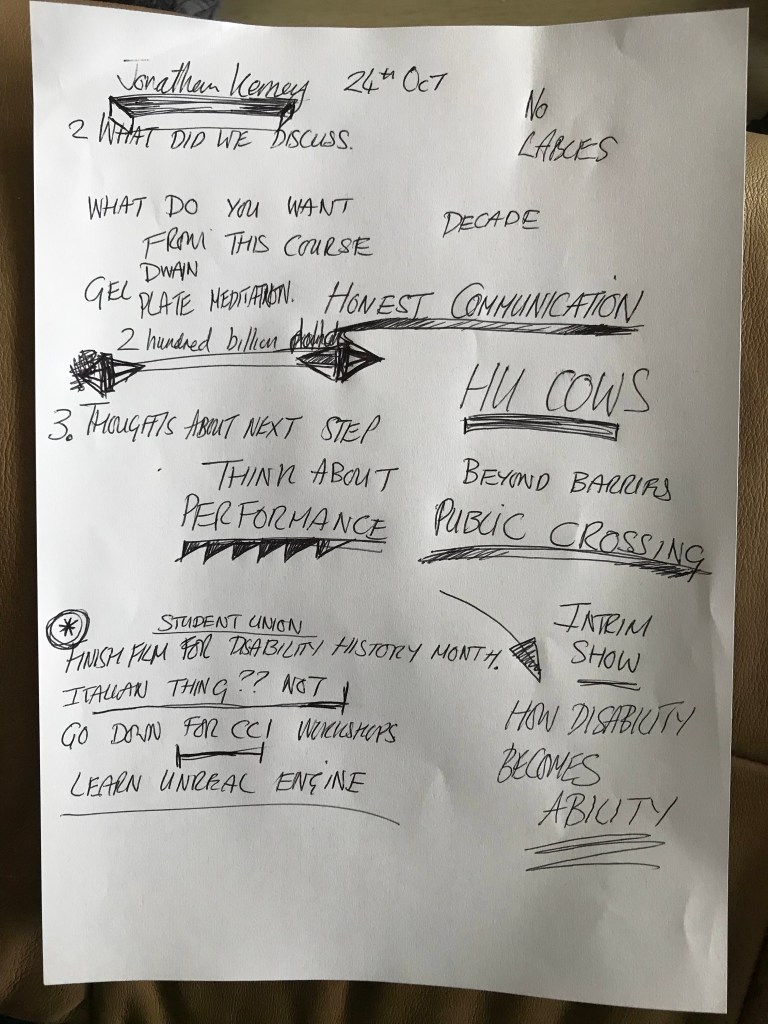 Jonathan Kerney 24th Oct
2 WHAT DID WE DISCUSS.
NO
LABLES
WHAT DO YOU WANT
FROM THIS COURSE
DWAIN
GEL PLATE MEDITATION.
2 hundred billion
DECADE
HONEST COMMUNICATION
HU COWS
3. THOUGHTS ABOUT NEXT STEP
THINK ABOUT
PERFORMANCE
BEYOND BARRIES
PUBLIC CROSSING
* STUDENT UNION
FINISH FILM FOR DISABILITY HISTORY MONTH.
ITALIAN THING?? NOT
GO DOWN FOR CCI WORKSHOPS
LEARN UNREAL ENGINE
INTRIM
SHOW
HOW DISABILITY
BECOMES
ABILITY